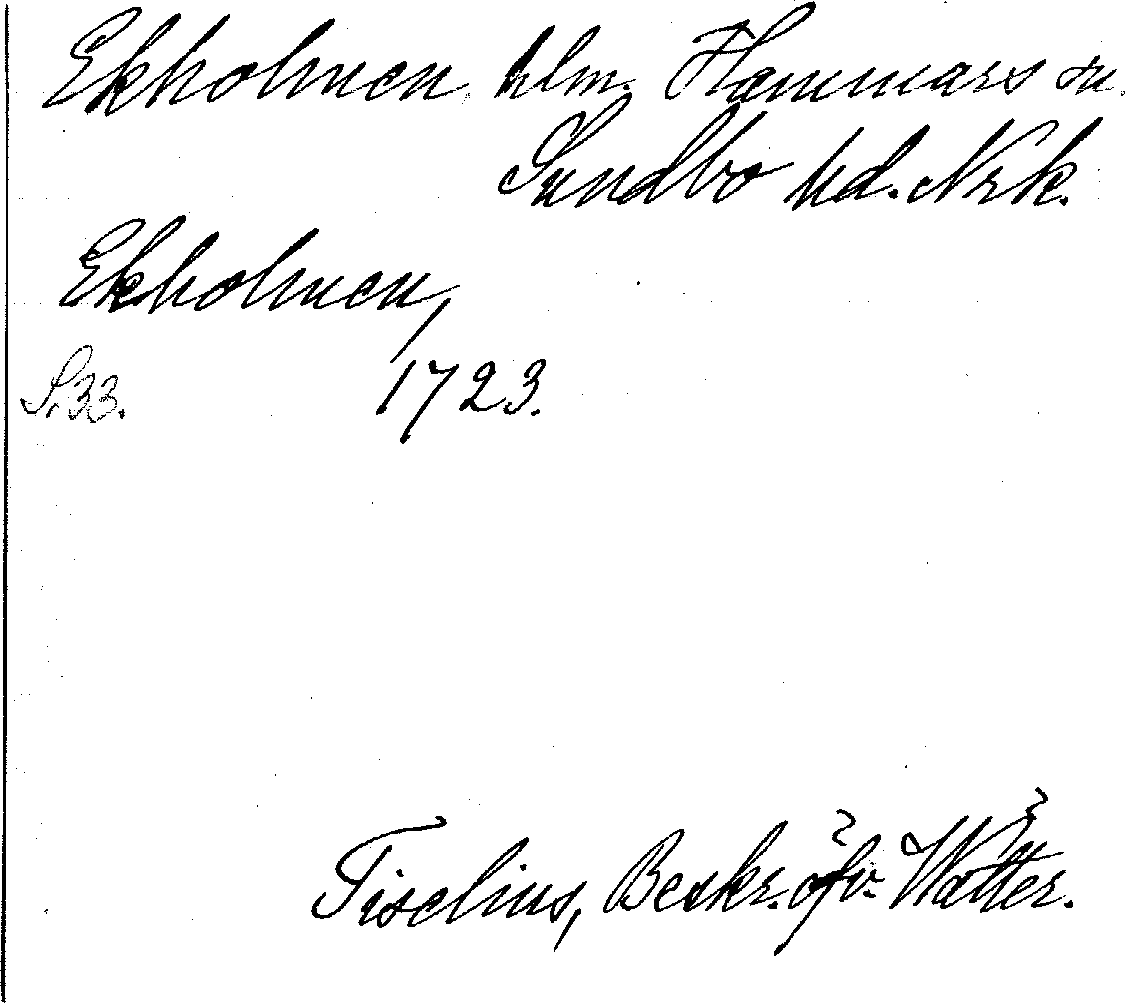 Ekholmen hlm. Hammars sn.
Sundbo hd. Nrk.
Ekholmen,
S. 33. 1723.
Tiselius, Beskr. öfv. Wätter.